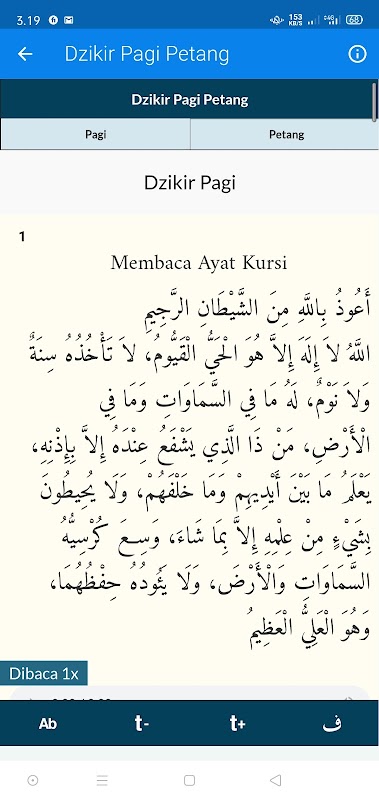 3.19
153
KB/S
4G
68
Dzikir Pagi Petang
Dzikir Pagi Petang
Pagi
Petang
Dzikir Pagi
1
Membaca Ayat Kursi
أَعُوذُ بِاللَّهِ مِنَ الشَّيْطَانِ الرَّجِيمِ
اللَّهُ لاَ إِلَهَ إِلاَّ هُوَ الْحَيُّ الْقَيُّومُ، لاَ تَأْخُذُهُ سِنَةٌ
وَلاَ نَوْمٌ، لَهُ مَا فِي السَّمَاوَاتِ وَمَا فِي
الْأَرْضِ، مَنْ ذَا الَّذِي يَشْفَعُ عِنْدَهُ إِلاَّ بِإِذْنِهِ،
يَعْلَمُ مَا بَيْنَ أَيْدِيهِمْ وَمَا خَلْفَهُمْ، وَلَا يُحِيطُونَ
بِشَيْءٍ مِنْ عِلْمِهِ إِلاَّ بِمَا شَاءَ، وَسِعَ كُرْسِيُّهُ
السَّمَاوَاتِ وَالْأَرْضَ، وَلَا يَئُودُهُ حِفْظُهُمَا،
وَهُوَ الْعَلِيُّ الْعَظِيمُ
Dibaca 1x
Ab
t-
t+
ف